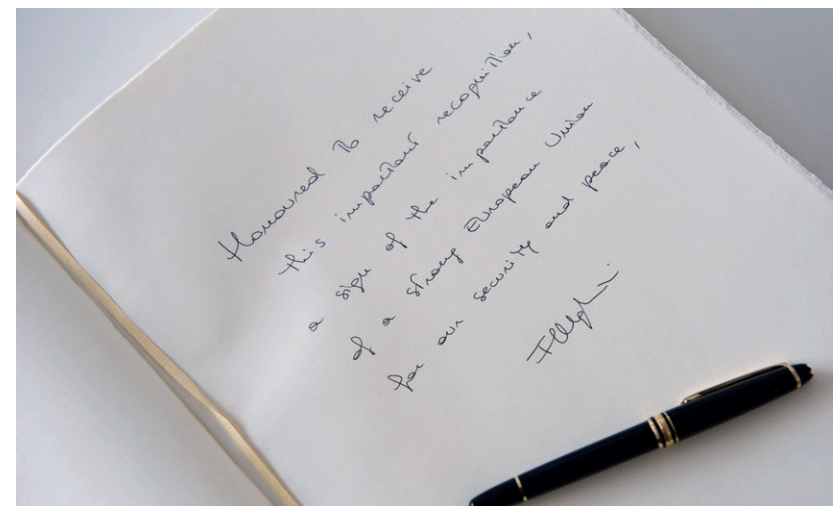 Honoured to receive
this important recognition,
a sign of the importance
of a strong European Union
for our security and peace,